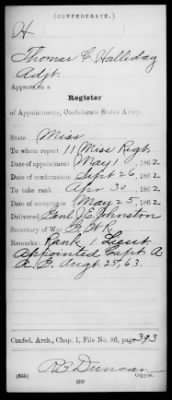 (CONFEDERATE.)
H
Thomas C Halliday
Adjt.
Appears on a
Register
of Appointments, Confederate States Army.
State Miss
To whom report 11 Miss Regt.
Date of appointment May 1, 1862
Date of confirmation Sept 26, 1862
To take rank Apr 30, 1862
Date of acceptance May 25, 1862
Delivered Genl J E Johnston
Secretary of War
Remarks: Rank 1 Lieut.
Appointed Capt. A
A. G. Augt 25, 63.
Confed. Arch., Chap. 1, File No. 86, page 393
Duncan
Copyist.